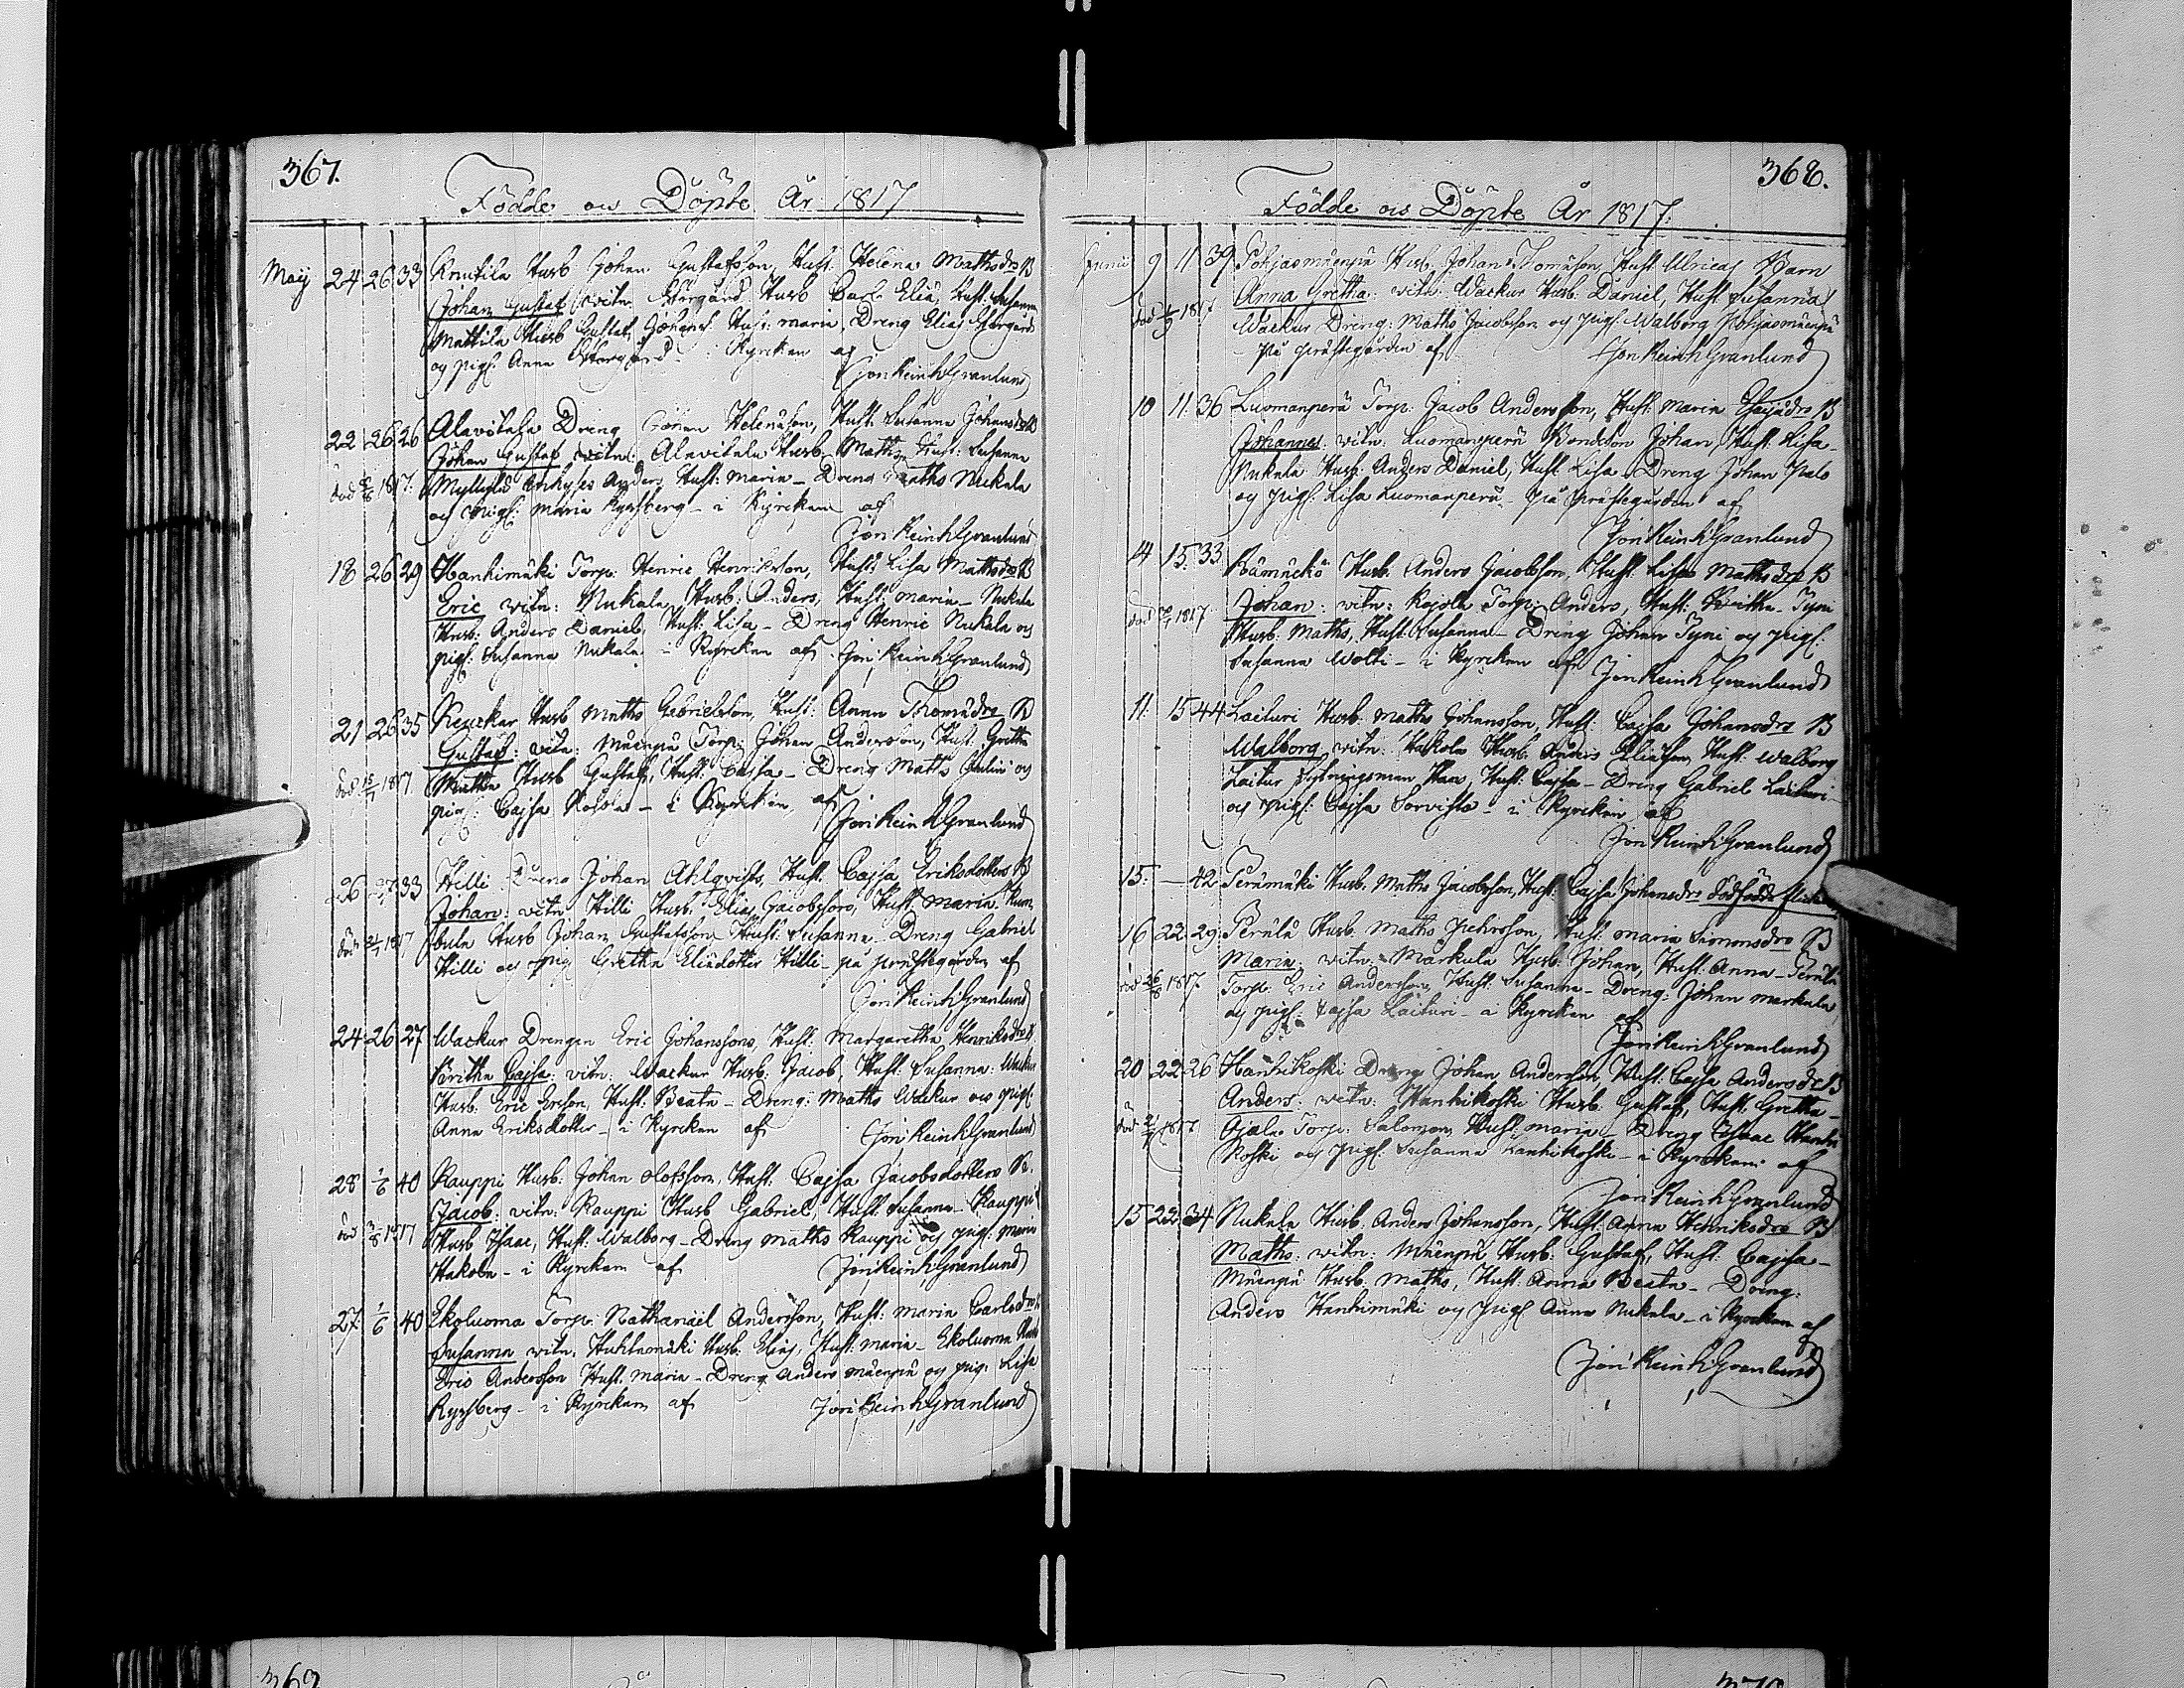 367.
Födde och Döpte År 1817
Maij 24 26 33 Knutila Husb Johan Gustafsson, Hust. Helena Mathsdrs B
Johan Gustaf witn Husb Carl Eliæ, Hust. Susanna
Mattila Husb Gustaf Johans. Hust: maria, Dreng Elias
og pig: Anna i Kyrckan af
Jon Reinh Granlund
22 26 26 Alavitala Dreng Johan Helenäson, Hust. Susanna Johansdrs B
Johan Gustaf witn: Alavitala Husb. Maths, Hust: Susanna
död 1817. Anders Hust: maria - Dreng Maths Nukala
og pig: maria Kyrsberg - i Kyrckan af
Jon Reinh Granlund
18 26 29 Hanhimäki Torp: Henric Henriksson, Hust. Lisa Mathsdrs B
Eric witn: Nukala Husb: Anders, Hust: maria - Nukala
Husb: Anders Daniel, Hust: Lisa - Dreng Henric Nukala og
pig: Susanna Nukala - i Kyrckan af Jon Reinh Granlund
21 26 35 Keuckar Husb Maths Gabrielsson, Hust: Anna Thomädrs B
Gustaf: witn: Mäenpää Torp: Johan Andersson, Hust. Gretha
död 1817 Husb Gustaf, Hust: Cajsa - Dreng Maths og
pig: Cajsa - i Kyrckan af
Jon Reinh Granlund
26 33 Hilli Dreng Johan Ahlqvists, Hust. Cajsa Eriksdotters B
Johan: witn Hilli Husb. Elias Jacobsson, Hust. Maria Kum
död 1817 bula Husb Johan Gustafsson Hust: Susanna Dreng Gabriel
Hilli og pig Gretha Eliædotter Hilli - på prästegården af
Jon Reinh Granlund
24 26 27 Wackur Drengen Eric Johanssons, Hust. Margaretha Henriksdrs B
Britha Cajsa: witn: Wackur Husb: Jacob Hust: Susanna: Wackur
Husb: Eric Ersson, Hust: Beata - Dreng: Maths Wackur og pig:
Anna Eriksdotter - i Kyrckan af Jon Reinh Granlund
28 1/6 40 Kauppi Husb: Johan Olofsson, Hust. Cajsa Jacobsdotters B.
Jacob: witn: Kauppi Husb Gabriel, Hust. Susanna - Kauppi
död 3/8 1817 Husb Isaac, Hust: Walborg - Dreng Maths Kauppi og pig: Maria
Hakola - i Kyrckan af Jon Reinh Granlund
27 1/6 40 Ekoluoma Torp: Nathanäel Andersson, Hust: Maria Carlsdrs
Susanna witn. Huhtamäki Husb. Elias, Hust: maria - Ekoluoma
Eric Andersson Hust. maria - Dreng Anders Mäenpää og pig: Lisa
Kyrsberg - i Kyrckan af Jon Reinh Granlund
368.
Födde och Döpte År 1817.
Junii 9 11 39 Pohjasmäenpää Husb. Johan Thomäson, Hust. Ulricas Barn
Anna Gretha: witn: Wackur Husb. Daniel, Hust Susanna
död 1817 Wackur Dreng: Maths Jacobsson og pig: Walborg Pohjasmäenpä
På prästegården af Jon Reinh Granlund
10 11 36 Luomanperä Torp: Jacob Andersson, Hust: Maria Esajädrs B
Johannes: witn: Luomanperä Bondeson Johan, Hust. Lisa -
Nukala Husb: Anders Daniel, Hust Lisa Dreng Johan Palo
og pig: Lisa Luomanperä. På prästegården af
Jon Reinh Granlund
14 15 33 Rämäckö Husb. Anders Jacobsson, Hust. Lisas Mathsdrs B
Johan: witn: Kojola Torp: Anders, Hust: Britha - Tyni
död 1817 Husb: Maths, Hust: Susanna - Dreng Johan Tyni og pig:
Susanna Wolti - i Kyrckan af Jon Reinh Granlund
11. 15 44 Laituri Husb: Maths Johansson, Hust: Cajsa Johansdrs B
Walborg witn: Hakola Husb. Anders Eliäson, Hust. Walborg
Laitur Sytningsman Hans, Hust: Cajsa - Dreng Gabriel Laituri -
og pig: Cajsa Sorvisto - i Kyrckan af
Jon Reinh Granlund
15. — 42 Perämäki Husb. Maths Jacobsson, Hust: Cajsa Johansdrs dödfödde
16 22 29 Perälä Husb. Maths Pehrsson, Hust: Maria Simonsdrs B
Maria: witn: Märkula Husb: Johan, Hust: Anna - Perälä
död 26/8 1817. Torp: Eric Andersson, Hust: Susanna - Dreng: Johan Markula
og pig: Cajsa Laituri - i Kyrckan af
Jon Reinh Granlund
20 22 26 Hanhikoski Dreng Johan Andersson, Hust: Cajsa Andersdr B
Anders: witn: Hanhikoski Husb. Gustaf, Hust: Gretha -
död 1817 Ojala Torp: Salomon, Hust: maria - Dreng Isaac Hanhi
koski og pig: Susanna Hanhikoski - i Kyrckan af
Jon Reinh Granlund
15 22 34 Nukala Husb. Anders Johansson, Hust: Anna Henriksdrs B
Maths: witn: Mäenpää Husb: Gustaf, Hust: Cajsa -
Mäenpää Husb. Maths, Hust: Anna Beata - Dreng:
Anders Hanhimäki og pig Anna Nukala - i Kyrckan af
Jon Reinh Granlund
369
370